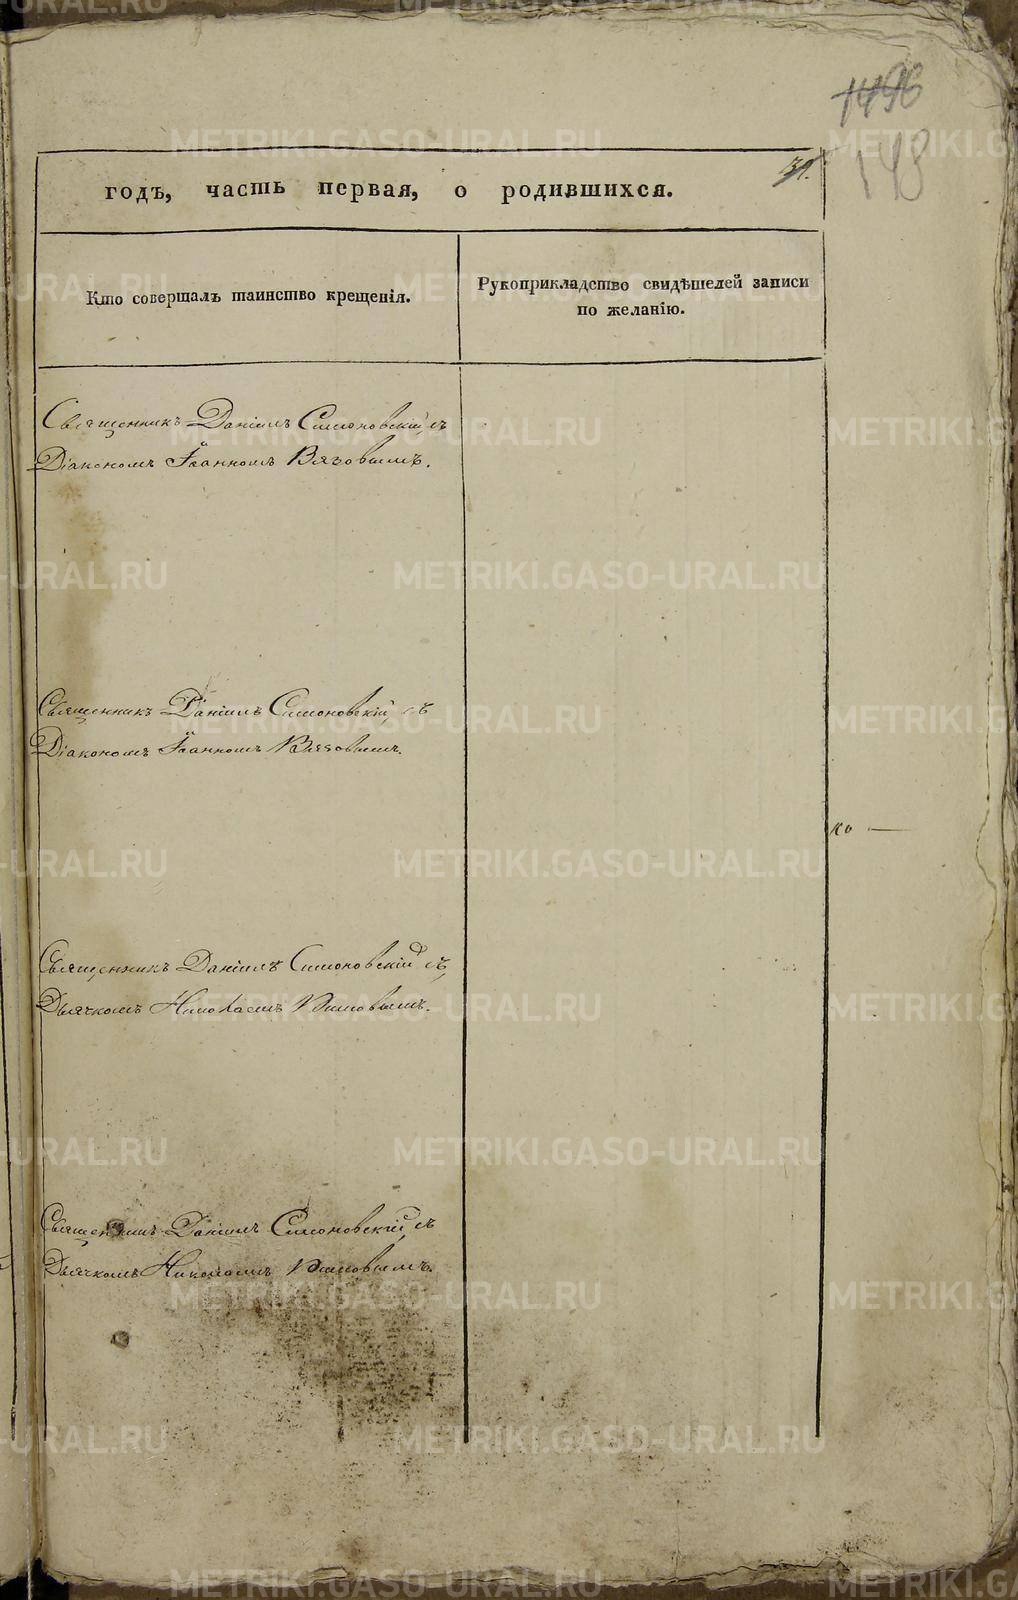 1496
148
31.
годъ, часть первая, о родившихся.
Кто совершалъ таинство крещенія.
Рукоприкладство свидѣтелей записи
по желанію.
Священникъ Даніилъ Симоновскій съ
Діакономъ Іоанномъ Вязовымъ.
Священникъ Даніилъ Симоновскій, съ
Діакономъ Іоанномъ Вязовымъ.
ко —
Священникъ Даніилъ Симоновскій съ
Дьячкомъ Николаемъ
Священникъ Даніилъ Симоновскій, съ
Дьячкомъ Николаемъ
METRIKI.GASO-URAL.RU